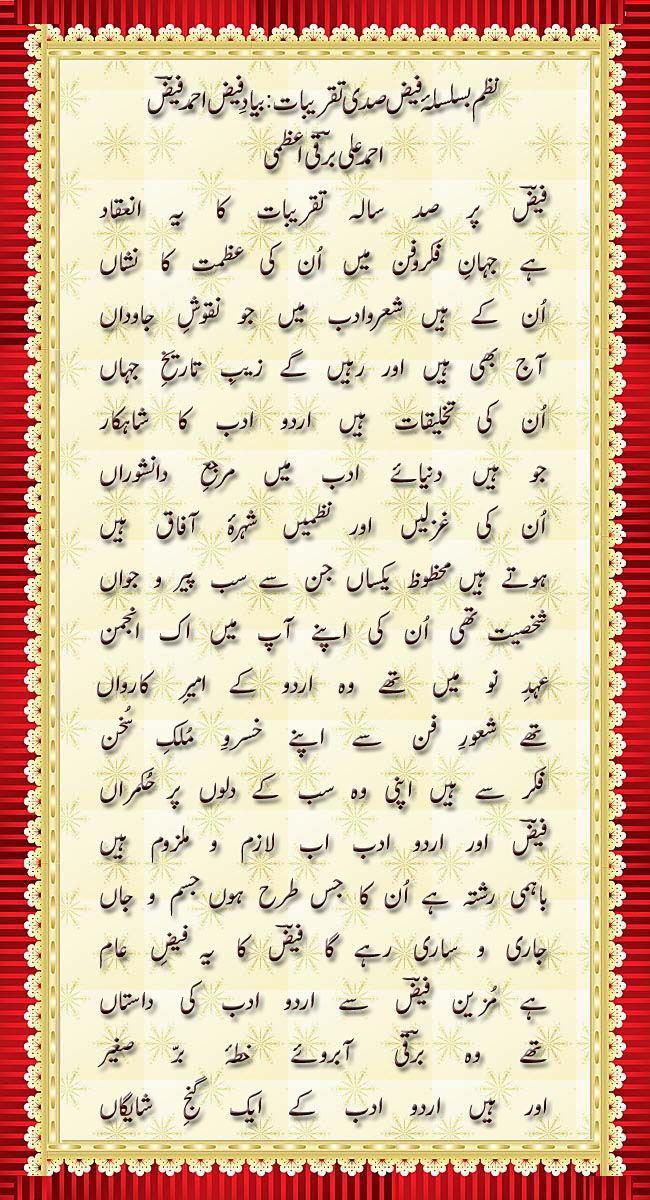 نظم بسلسلۂ فیض صدی تقریبات: بیادِ فیض احمد فیضؔ
احمد علی برقیؔ اعظمی
فیضؔ پر صد سالہ تقریبات کا یہ انعقاد
ہے جہانِ فکروفن میں اُن کی عظمت کا نشاں
اُن کے ہیں شعروادب میں جو نقوشِ جاوداں
آج بھی ہیں اور رہیں گے زیبِ تاریخِ جہاں
اُن کی تخلیقات ہیں اردو ادب کا شاہکار
جو ہیں دنیائے ادب میں مرجعِ دانشوراں
اُن کی غزلیں اور نظمیں شہرۂ آفاق ہیں
ہوتے ہیں محظوظ یکساں جن سے سب پیر و جواں
شخصیت تھی اُن کی اپنے آپ میں اک انجمن
عہدِ نو میں تھے وہ اردو کے امیرِ کارواں
تھے شعورِ فن سے اپنے خسروِ مُلکِ سُخن
فکر سے ہیں اپنی وہ سب کے دلوں پر حُکمراں
فیضؔ اور اردو ادب اب لازم و ملزوم ہیں
باہمی رشتہ ہے اُن کا جس طرح ہوں جسم و جاں
جاری و ساری رہے گا فیضؔ کا یہ فیضِ عام
ہے مُزین فیضؔ سے اردو ادب کی داستاں
تھے وہ برقیؔ آبروئے خطۂ برِّ صغیر
اور ہیں اردو ادب کے ایک گنجِ شایگاں